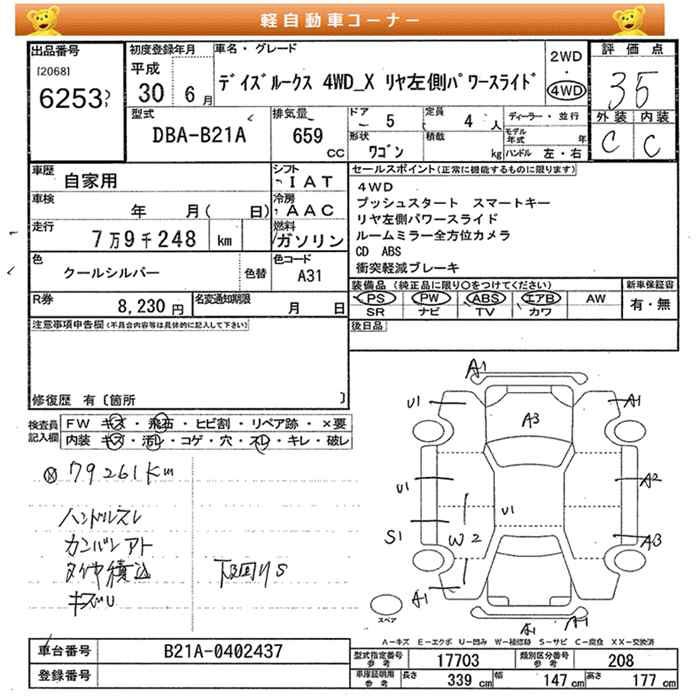 軽自動車コーナー
出品番号
[2068]
6253
初度登録年月
平成
30 6 月
車名・グレード
デイズルークス 4WD_X リヤ左側パワースライド
2WD
・
4WD
評価点
35
外装 内装
C C
型式
DBA-B21A
排気量
659
CC
ドア
5
定員
4 人
形状
ワゴン
積載
kg
ディーラー・並行
モデル年式 年
ハンドル 左・右
車歴
自家用
シフト
IAT
車検
年 月( 日)
冷房
AAC
走行
7万9千248 km
燃料
ガソリン
色
クールシルバー
色替
色コード
A31
R券
8,230 円
名変通知期限
月 日
セールスポイント(正常に機能するものに限ります)
4WD
プッシュスタート スマートキー
リヤ左側パワースライド
ルームミラー全方位カメラ
CD ABS
衝突軽減ブレーキ
装備品 (純正品に限り○をつけてください)
新車保証書
PS PW ABS エアB AW
有・無
SR ナビ TV カワ
後日品
注意事項申告欄(不具合内容等は具体的に記入して下さい)
修復歴 有〔箇所 〕
検査員記入欄
FW キズ・飛石・ヒビ割・リペア跡・×要
内装 キズ・汚レ・コゲ・穴・スレ・キレ・破レ
79261km
ハンドルスレ
カンバンアト
タイヤ積込
キズU
下回りS
A1
U1
A1
A3
U1
U1
A2
S1
W2
A3
A1
A1
A1
スペア
A-キズ E-エクボ U-凹み W-補修跡 S-サビ C-腐食 XX-交換済
車台番号
B21A-0402437
登録番号
型式指定番号
参考
17703
類別区分番号
参考
208
車庫証明用
参考
長さ 339 cm 幅 147 cm 高さ 177 cm